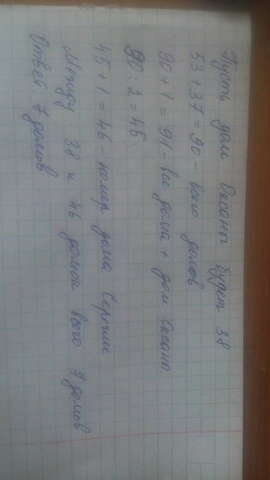 Пусть дом Оксаны будет 38
53 + 37 = 90 - всего домов
90 + 1 = 91 - все дома + дом Оксаны
90 : 2 = 45
45 + 1 = 46 - номер дома Сергея
Между 38 и 46 домом всего 7 домов
Ответ 7 домов